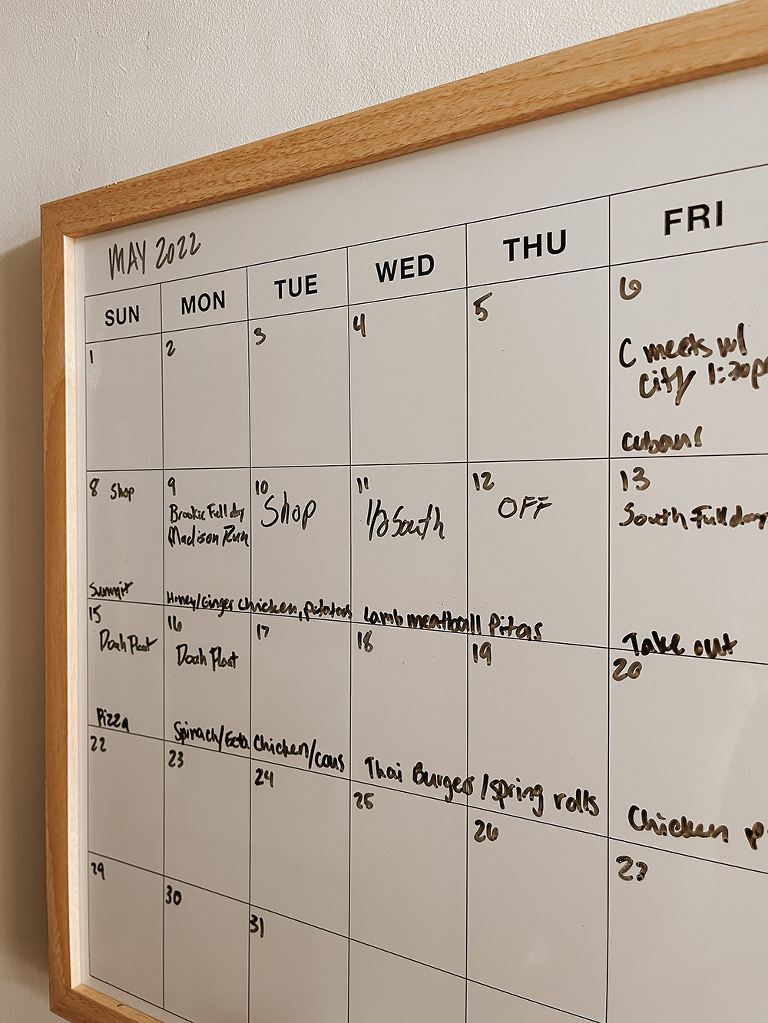 MAY 2022
SUN MON TUE WED THU FRI
1 2 3 4 5 6
C meets w/
City 1:30p
Cubans
8 Shop
Summit
9
Brookie Full day
Madison Run
10
Shop
Honey/Ginger Chicken, potatoes
11
1/2 South
12
OFF
Lamb meatball Pitas
13
South Full day
Take out
15
Float
Pizza
16
Float
17
Spinach/Feta Chicken/cous
18 19
Thai Burgers/spring rolls
20
Chicken
22 23 24 25 26 27
29 30 31